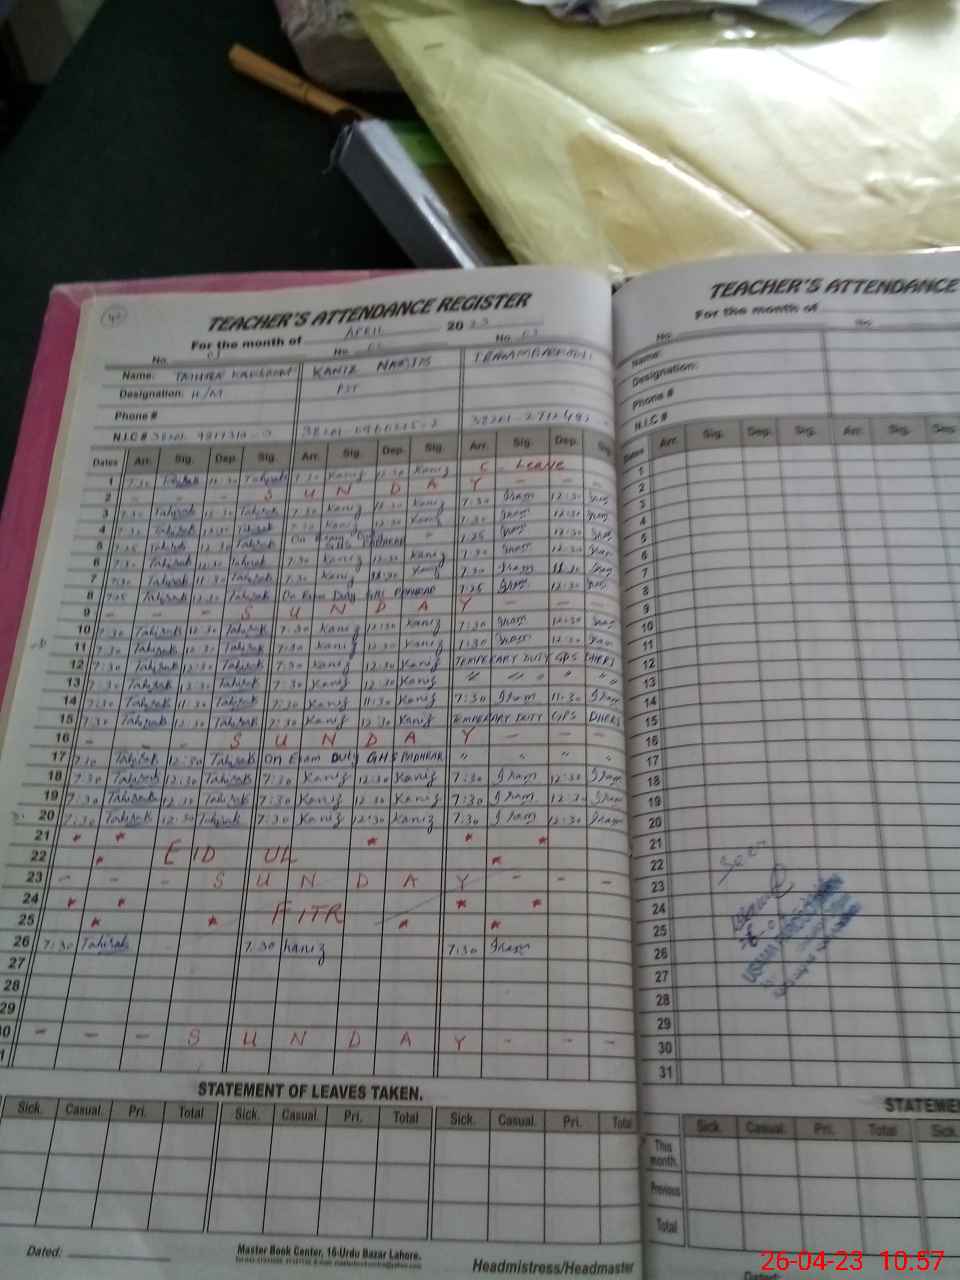 TEACHER'S ATTENDANCE REGISTER
For the month of APRIL 2023
No. 01 No. 02 No. 03
Name: TAHIRA KANIZ NARJIS
Designation: H/M PST
Phone #
N.I.C #
Dates Arr. Sig. Dep. Sig. Arr. Sig. Dep. Sig. Arr. Sig. Dep. Sig.
1 7:30 Tahirah 12:30 Tahirah 7:30 Kaniz 12:30 Kaniz C - Leave
2 - - - S U N D A Y - - -
3 7:30 Tahirah 12:30 Tahirah 7:30 Kaniz 12:30 Kaniz 7:30 Iram 12:30 Iram
4 7:30 Tahirah 12:30 Tahirah 7:30 Kaniz 12:30 Kaniz 7:30 Iram 12:30 Iram
5 7:25 Tahirah 12:30 Tahirah On Exam Duty GHS PADHRAR 7:25 Iram 12:30 Iram
6 7:30 Tahirah 12:30 Tahirah 7:30 Kaniz 12:30 Kaniz 7:30 Iram 12:30 Iram
7 7:30 Tahirah 11:30 Tahirah 7:30 Kaniz 11:30 Kaniz 7:30 Iram 11:30 Iram
8 7:25 Tahirah 12:30 Tahirah On Exam Duty GHS PADHRAR 7:25 Iram 12:30 Iram
9 - - - S U N D A Y - - -
10 7:30 Tahirah 12:30 Tahirah 7:30 Kaniz 12:30 Kaniz 7:30 Iram 12:30 Iram
11 7:30 Tahirah 12:30 Tahirah 7:30 Kaniz 12:30 Kaniz 7:30 Iram 12:30 Iram
12 7:30 Tahirah 12:30 Tahirah 7:30 Kaniz 12:30 Kaniz TEMPERARY DUTY GPS DHERI
13 7:30 Tahirah 12:30 Tahirah 7:30 Kaniz 12:30 Kaniz " " " "
14 7:30 Tahirah 11:30 Tahirah 7:30 Kaniz 11:30 Kaniz 7:30 Iram 11:30 Iram
15 7:30 Tahirah 12:30 Tahirah 7:30 Kaniz 12:30 Kaniz TEMPERARY DUTY GPS DHERI
16 - - - S U N D A Y - - -
17 7:30 Tahirah 12:30 Tahirah On Exam Duty GHS PADHRAR " " " "
18 7:30 Tahirah 12:30 Tahirah 7:30 Kaniz 12:30 Kaniz 7:30 Iram 12:30 Iram
19 7:30 Tahirah 12:30 Tahirah 7:30 Kaniz 12:30 Kaniz 7:30 Iram 12:30 Iram
20 7:30 Tahirah 12:30 Tahirah 7:30 Kaniz 12:30 Kaniz 7:30 Iram 12:30 Iram
21
22 EID UL
23 - - - S U N D A Y - - -
24
25 FITR
26 7:30 Tahirah 7:30 Kaniz 7:30 Iram
27
28
29
0 - - - S U N D A Y - - -
1
STATEMENT OF LEAVES TAKEN.
Sick. Casual. Pri. Total Sick. Casual. Pri. Total Sick. Casual. Pri. Total
Dated:
Master Book Center, 16-Urdu Bazar Lahore.
Headmistress/Headmaster
TEACHER'S ATTENDANCE
For the month of
No. No.
Name:
Designation:
Phone #
N.I.C #
Dates Arr. Sig. Dep. Sig. Arr. Sig. Dep.
1
2
3
4
5
6
7
8
9
10
11
12
13
14
15
16
17
18
19
20
21
22
23
24
25
26
27
28
29
30
31
Seen
STATEME
Sick. Casual. Pri. Total Sick.
This month.
Previous
Total
Dated:
26-04-23 10:57